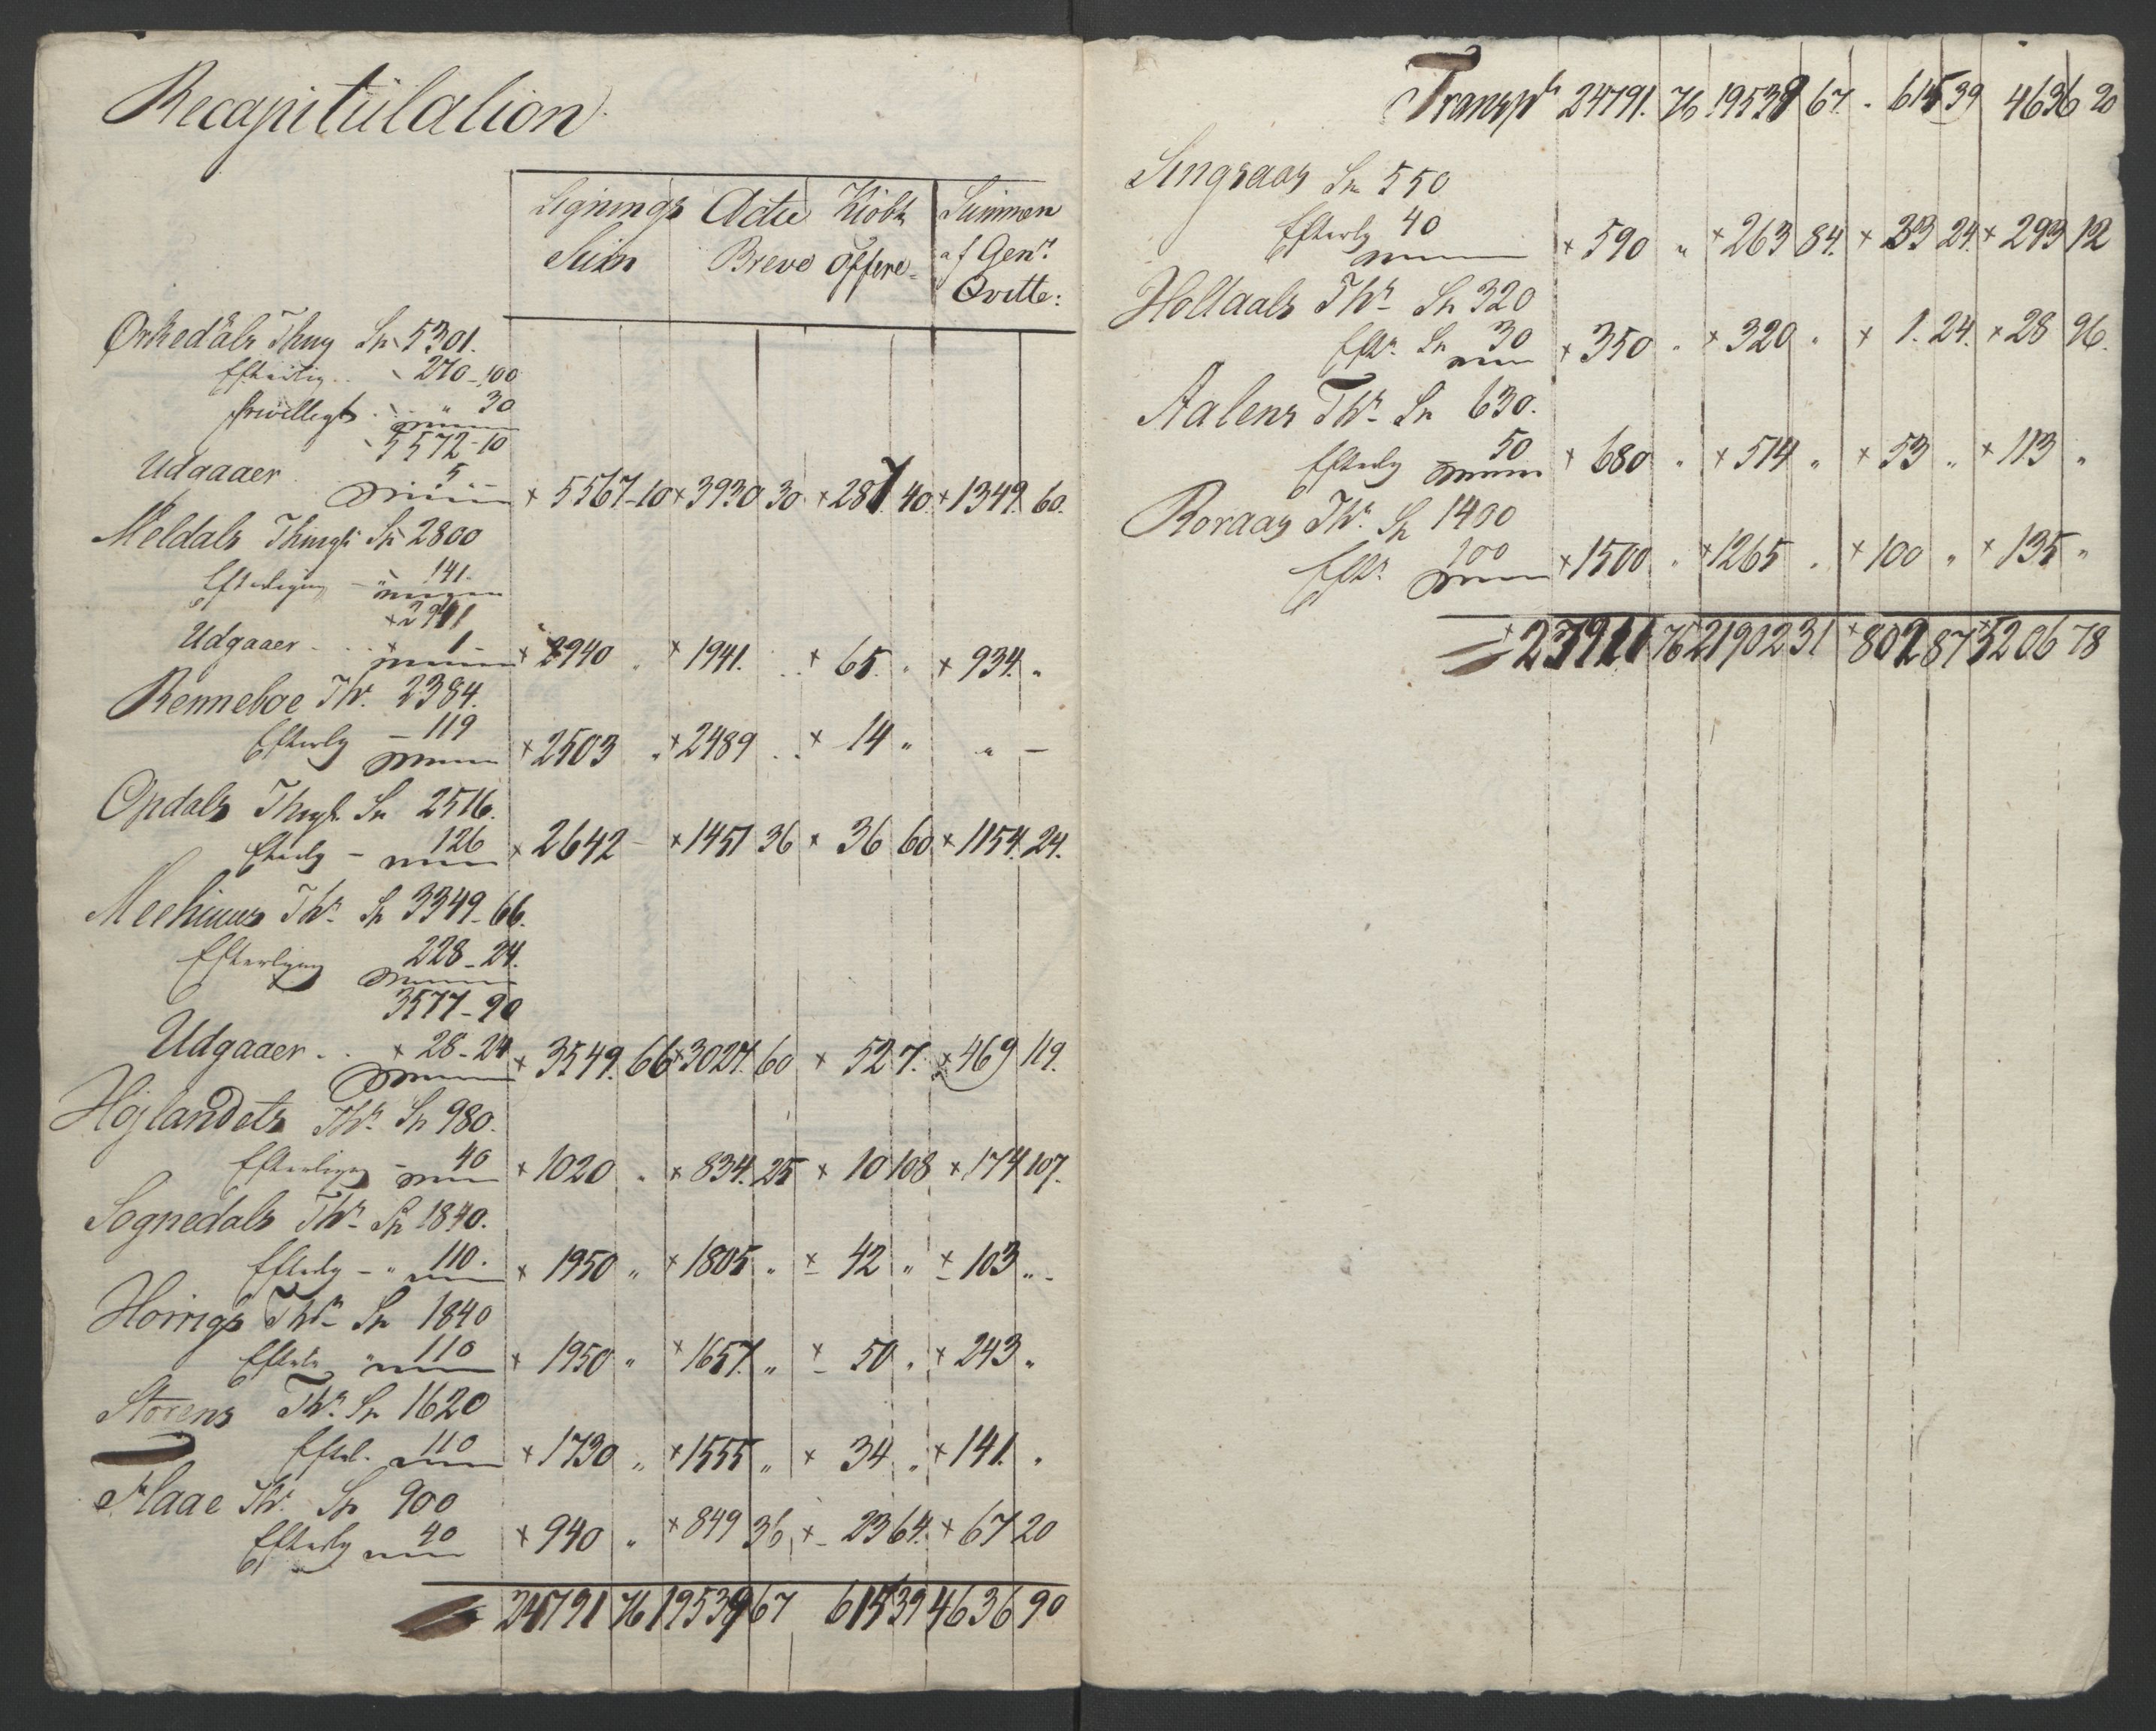 Recapitulation
Lignings Actie Kiöbt Summen
Sum Breve offere- af Gen.
Qvitte:
Ørkedals Thing Sp 5301.
Efterlig.. 270-100
frivilligt. " 30
5572-10
Udgaaer 5 - × 5567-10 × 3930 30 × 287 40 × 1349 60.
Meldals Thingl Sp 2800
Efterligng - " 141.
× 2941
Udgaaer. . . × 1 - × 2940 . × 1941. . . × 65. " × 934. "
Renneboe Thr. 2384.
Efterlg - 119 × 2503 " × 2489 . . × 14 " " -
Opdals Thngl Sp 2516.
Efterlg - 126 × 2642 - × 1451 36 × 36 60 × 1154. 24.
Meehuus Thr. Sp 3349-66.
Efterligng 228-24.
3577-90
Udgaaer. . × 28-24 × 3549. 66 × 3027. 60 × 52 7. × 469 119.
Højlandets Thr. Sp 980.
Efterligng - 40 × 1020 " × 834. 25 × 10 108 × 174 107.
Sognedals Thr. Sp 1840.
Efterlg - " 110. × 1950 " × 1805 " × 42 " × 103 " -
Horrigs Thr. Sp 1840
Efterl " 110 × 1950 " × 1657. " × 50 " × 243 "
Storens Thr. Sp 1620
Efterl. 110 × 1730 " × 1555 " × 34 " × 141. "
Flaae Thr. Sp 900
Efterlg 40 × 940 " × 849 36 × 23 64. × 67 20
24791 76 19538 67 615 39 4636 90
Transpt 24791. 76 19538 67. . 615 39 4636 20
Singsaas Sp 550
Efterlg 40 × 590 " × 263 84. × 33 24. × 293 12
Holtaals Thr. Sp 320
Eftr. Sp 30 × 350 " × 320 " × 1. 24. × 28 96.
Aalens Thr. Sp 630.
Efterlg 50 × 680 " × 514 " × 53 " × 113 "
Roraas Thr. Sp 1400
Eftr. 100 × 1500 " × 1265 " × 100 " × 135 "
× 27911 76 21902 31 × 802 87 × 5206 78